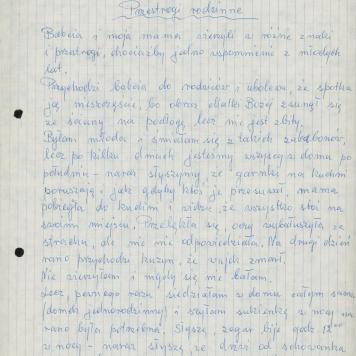 Przestrogi rodzinne
Babcia i moja mama wierzyły w różne znaki
i przestrogi, chociażby jedno wspomnienie z młodych
lat.
Przychodzi babcia do rodziców i ubolewa, że spotka
ją nieszczęście, bo obraz Matki Bożej zsunął się
ze ściany na podłogę, lecz nie jest zbity.
Byłam młoda i śmiałam się z takich zabobonów,
lecz po kilku dniach jesteśmy wszyscy w domu po
południu - naraz słyszymy, że garnki na kuchni
poruszają i jak gdyby ktoś je przesuwał, mama
pobiegła do kuchni i widzi, że wszystko stoi na
swoim miejscu. Przelękła się, oczy wybałuszyła ze
strachu, ale nic nie odpowiedziała. Na drugi dzień
rano przychodzi kuzyn, że wujek zmarł.
Nie wierzyłam i nigdy się nie bałam.
Lecz, pewnego razu siedziałam w domu całym sama
(domek jednorodzinny) i szyłam sukienkę w nocy na
rano była potrzebna. Słyszę, zegar bije godz. 12⁰⁰
w nocy - naraz słyszę, że drzwi od